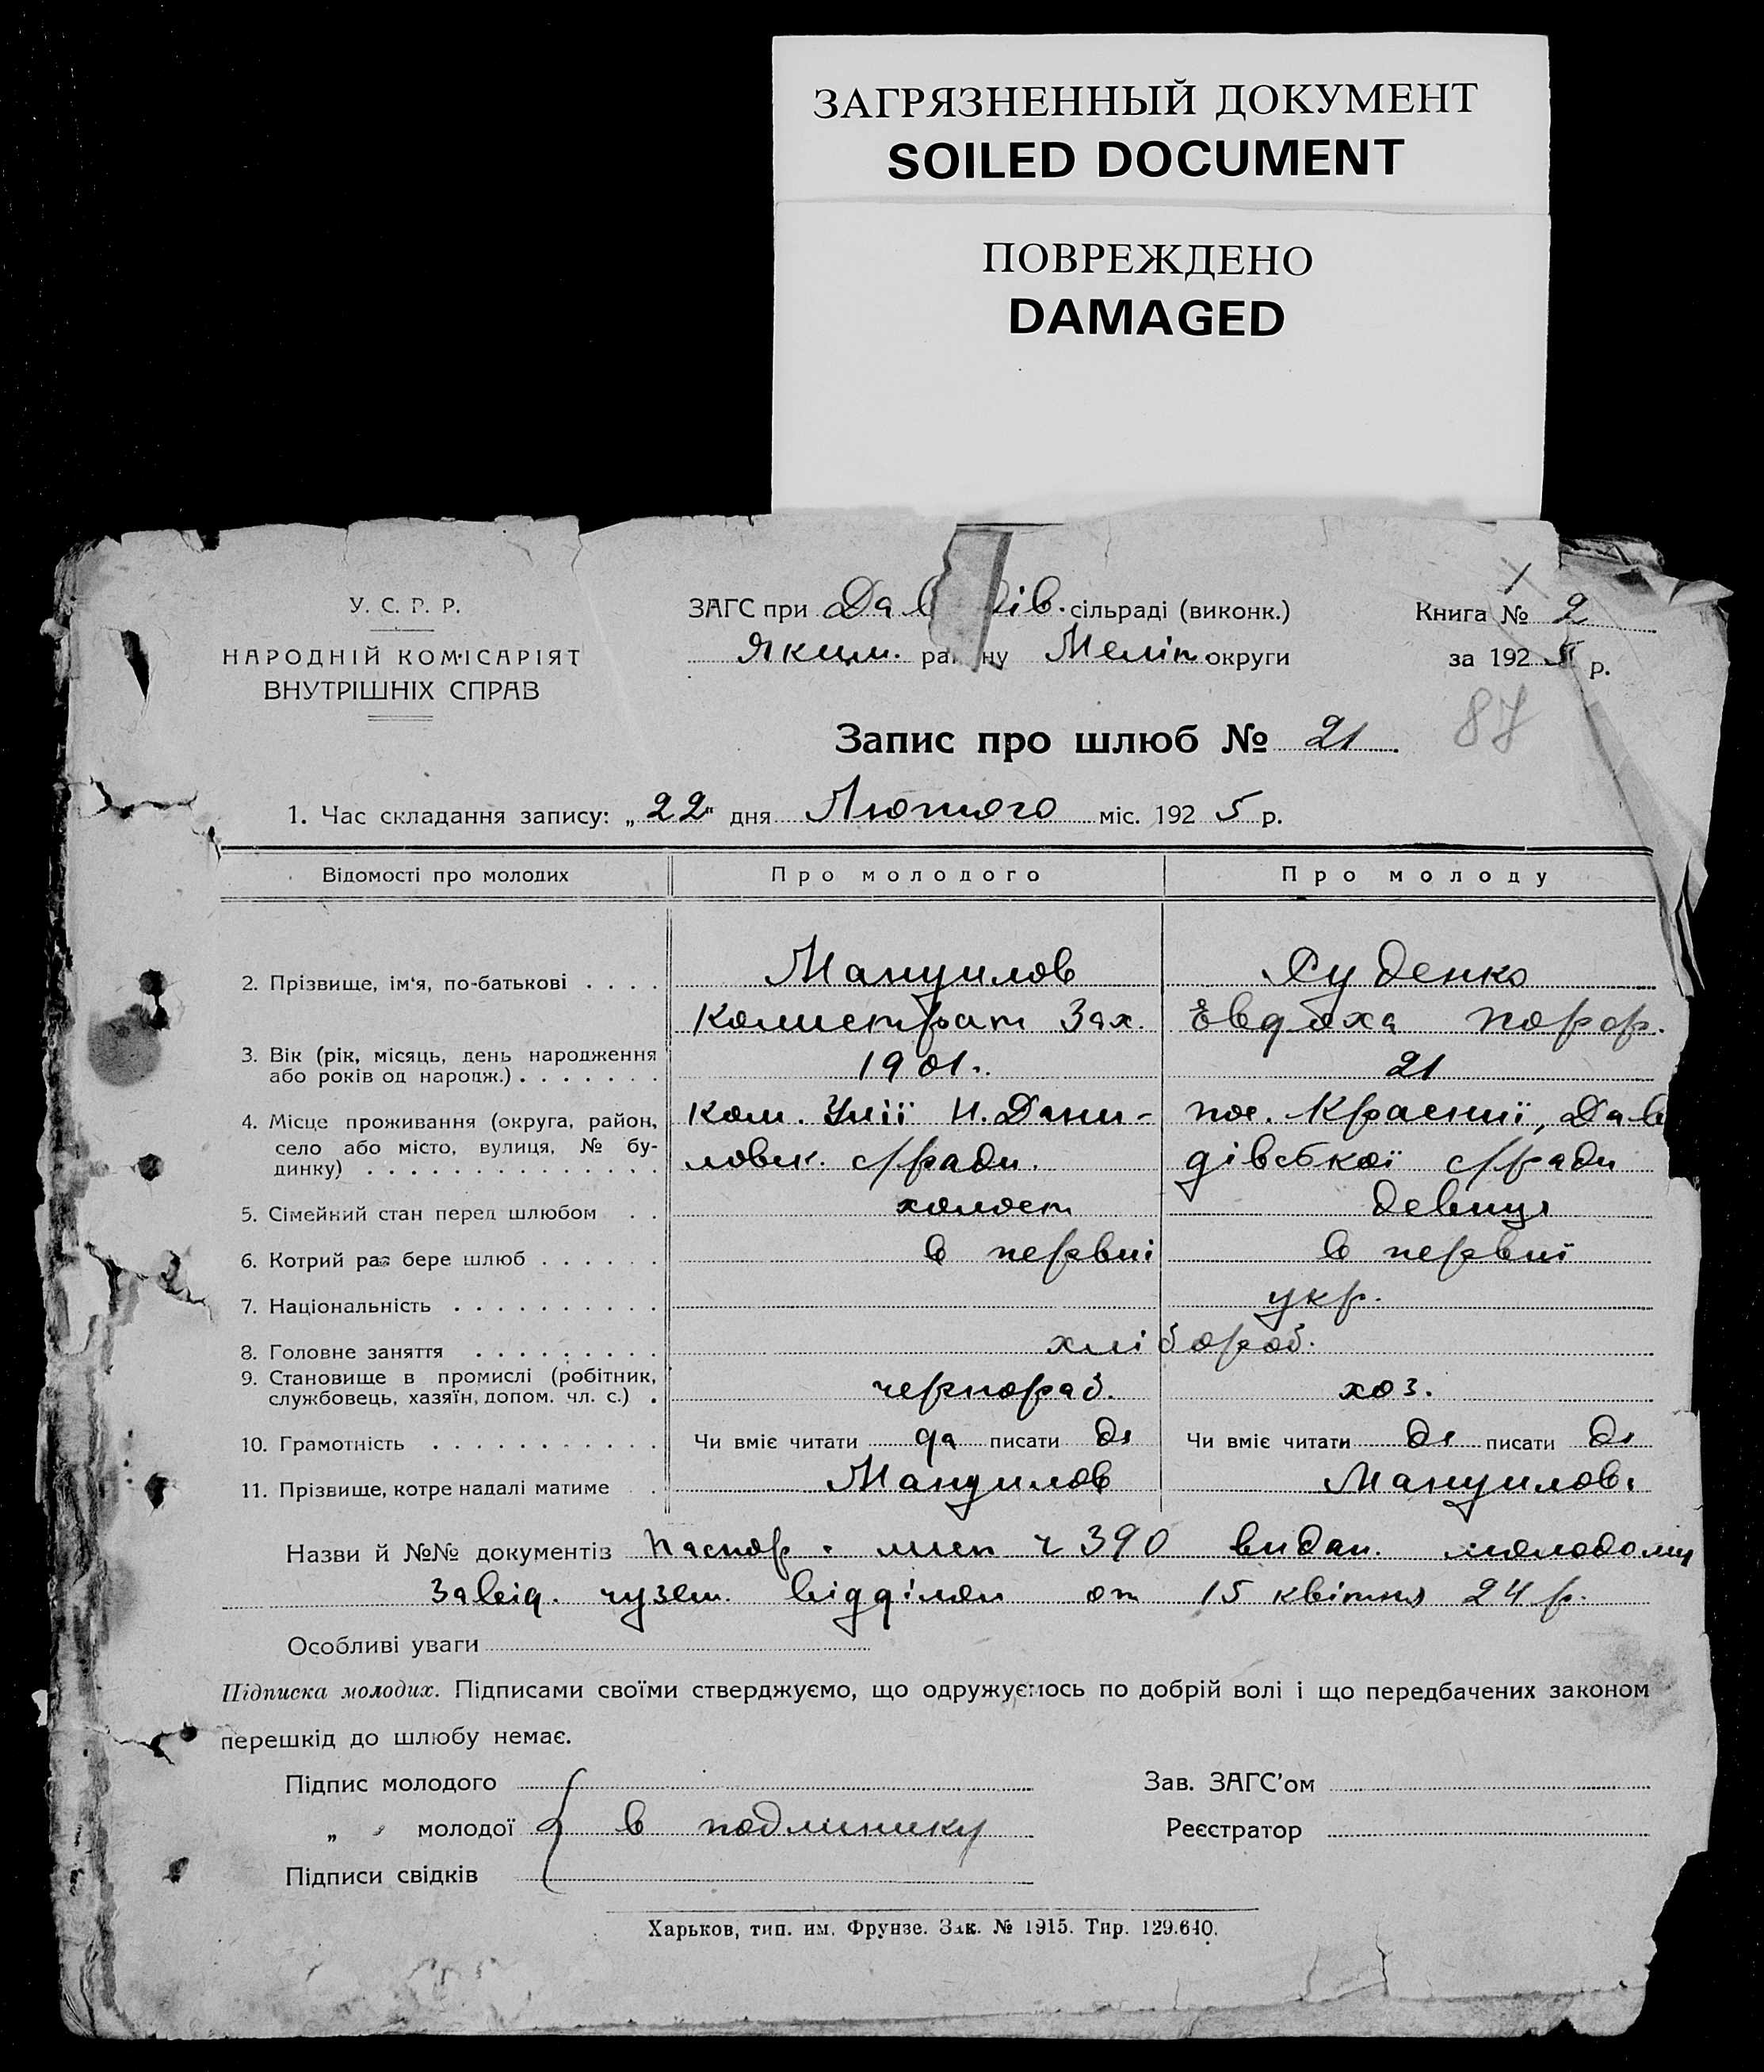 ЗАГРЯЗНЕННЫЙ ДОКУМЕНТ
SOILED DOCUMENT
ПОВРЕЖДЕНО
DAMAGED
У. С. Р. Р.
НАРОДНІЙ КОМІСАРІЯТ
ВНУТРІШНІХ СПРАВ
ЗАГС при Дав дів. сільраді (виконк.)
Яким. району Меліт. округи
Книга № 2
за 1925 р.
Запис про шлюб № 21.
87
1. Час складання запису: „22" дня Лютого міс. 1925 р.
Відомості про молодих Про молодого Про молоду
2. Прізвище, ім'я, по-батькові Мануилов Руденко
Калистрат Зах. Євдоха Порф.
3. Вік (рік, місяць, день народження 1901. 21
або років од народж.)
4. Місце проживання (округа, район, Ком. Унії Н. Дани- пос. Красниї, Дав
село або місто, вулиця, № бу- ловск. с/ради. дівської с/ради
динку)
5. Сімейний стан перед шлюбом холост девиця
6. Котрий раз бере шлюб в первиі в первиї
7. Національність укр.
8. Головне заняття хлібороб.
9. Становище в промислі (робітник, чернораб. хоз.
службовець, хазяїн, допом. чл. с.)
10. Грамотність Чи вміє читати да писати да Чи вміє читати да писати да
11. Прізвище, котре надалі матиме Мануилов Мануилова
Назви й №№ документів Паспор. лист ч 390 видан. молодому
Завід. чузем. відділом от 15 квітня 24 р.
Особливі уваги
Підписка молодих. Підписами своїми стверджуємо, що одружуємось по добрій волі і що передбачених законом
перешкід до шлюбу немає.
Підпис молодого
Зав. ЗАГС'ом
„ молодої в подлинику
Реєстратор
Підписи свідків
Харьков, тип. им. Фрунзе. Зак. № 1915. Тир. 129.640.